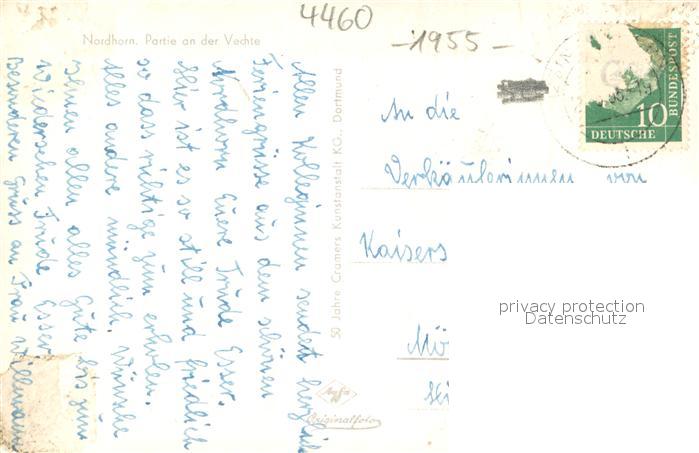 4460
-1955-
Nordhorn. Partie an der Vechte
Allen Kolleginnen sendet herzlich
Feriengrüsse aus dem schönen
Nordhorn Euere Trude Esser.
Hier ist es so still und friedlich
so dass richtige zum erholen.
Alles andere mündlich. Wünsche
Ihnen allen alles Gute bis zum
Wiedersehen Trude Esser
Besonderen Gruss an Frau Willmann
50 Jahre Cramers Kunstanstalt KG., Dortmund
Agfa
Originalfoto
10
DEUTSCHE
BUNDESPOST
An die
Verkäuferinnen von
Kaisers
Mö
privacy protection
Datenschutz